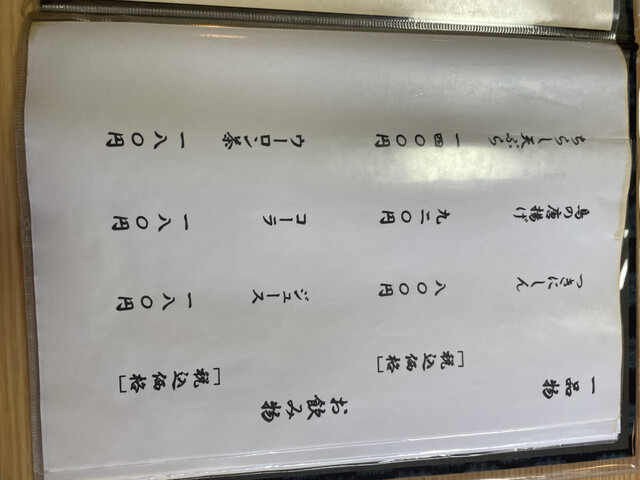 一品物 [税込価格]
つきにしん 八〇〇円
鳥の唐揚げ 九二〇円
ちらし天ぷら 一四〇〇円
お飲み物 [税込価格]
ジュース 一八〇円
コーラ 一八〇円
ウーロン茶 一八〇円